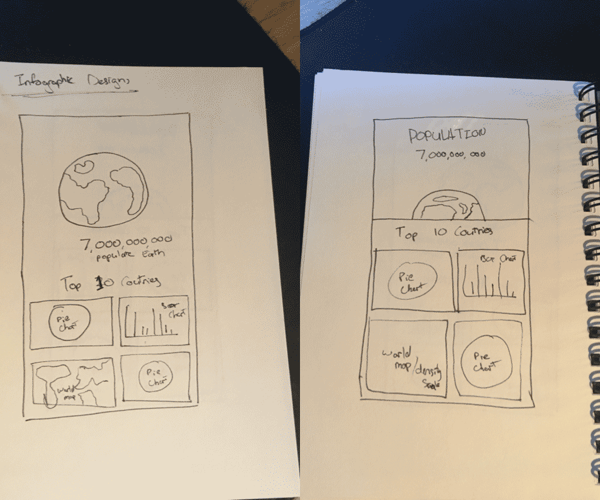 Infographic Designs
7,000,000,000
populate Earth
Top 10 Coutries
Pie
Chart
Bar
Chart
world
map
Pie
Chart
POPULATION
7,000,000,000
Top 10 Coutries
Pie
Chart
Bar Chart
world
map/density
scale
Pie
Chart